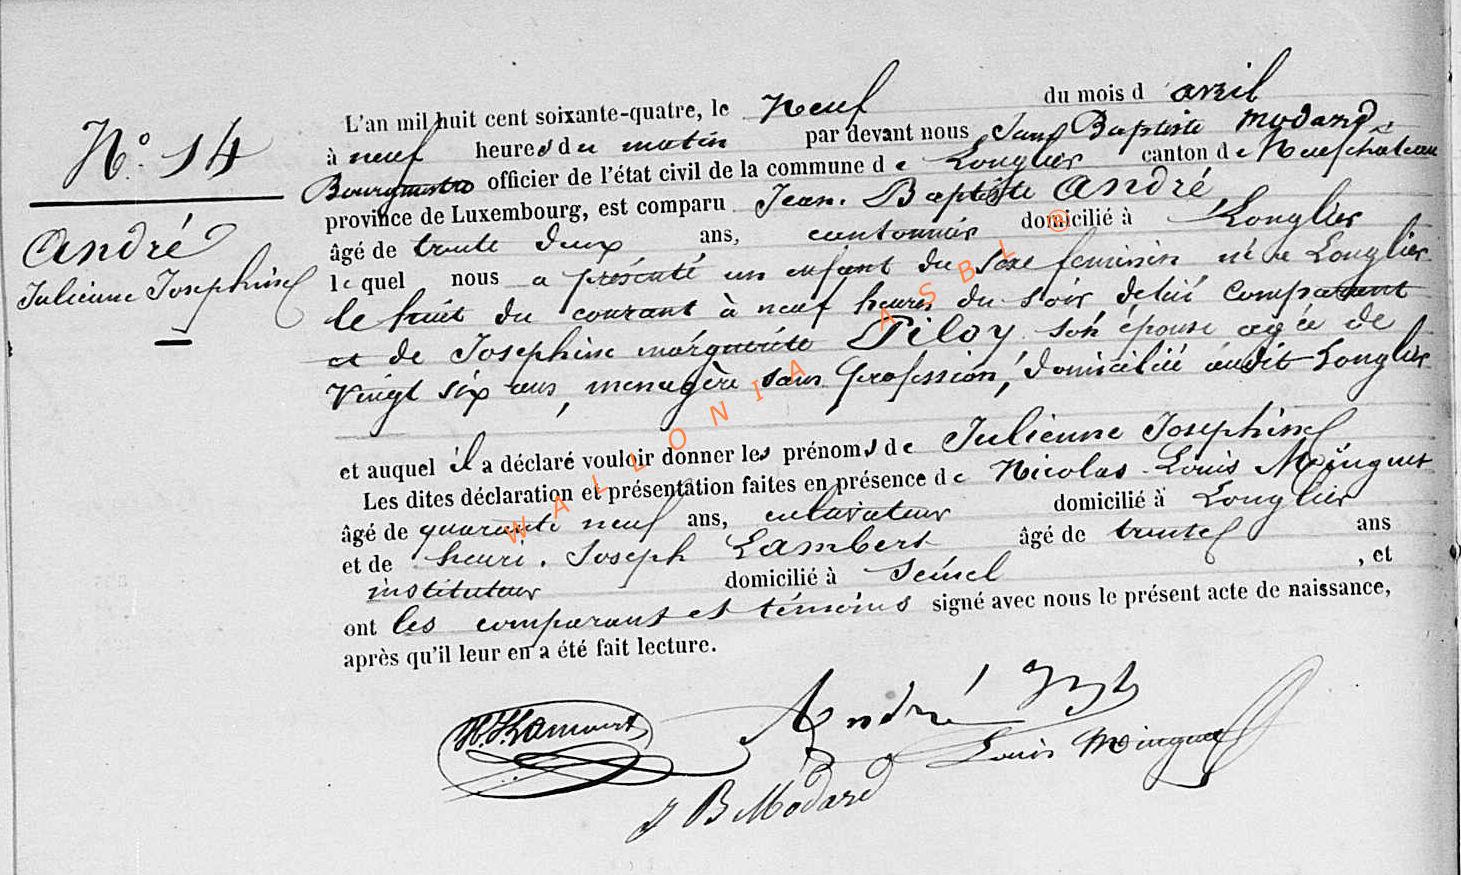 N.° 14
André
Julienne Josephine
L'an mil huit cent soixante-quatre, le Neuf du mois d avril
à neuf heures du matin par devant nous Jean Baptiste Modard
Bourgmestre officier de l'état civil de la commune de Longlier canton de Neufchâteau
province de Luxembourg, est comparu Jean. Baptiste André
âgé de trente deux ans, cantonnier domicilié à Longlier
lequel nous a présenté un enfant du sexe feminin né à Longlier
le huit du courant à neuf heures du soir de lui comparant
et de Josephine marguerite Piloy son épouse agée de
vingt six ans, menagère sans profession, domiciliée audit Longlier
et auquel il a déclaré vouloir donner les prénoms de Julienne Josephine
Les dites déclaration et présentation faites en présence de Nicolas Louis Minguet
âgé de quarante neuf ans, cultivateur domicilié à Longlier
et de henri. Joseph Lambert âgé de trente ans
instituteur domicilié à Semel , et
ont les comparant et témoins signé avec nous le présent acte de naissance,
après qu'il leur en a été fait lecture.
H.J. Lambert André
Louis Minguet
J B Modard
WALLONIA ASBL ®